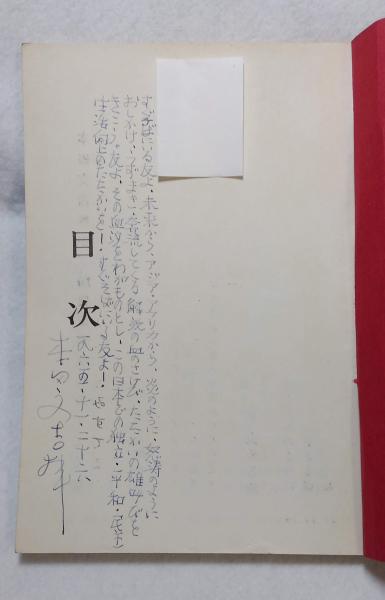 すぐそばにいる友よ、未来から、アジア・アフリカから、炎のように・怒涛のように
おしよせ、うずまき・合流してくる解放の血のさけび、たたかいの雄叫びを
きこう。友よ、その血汐をわがものとし、この日本での独立・平和・民主・
生活向上のたたかいを!すぐそばにいる友よ!
目次
一九六五・十一・二十六